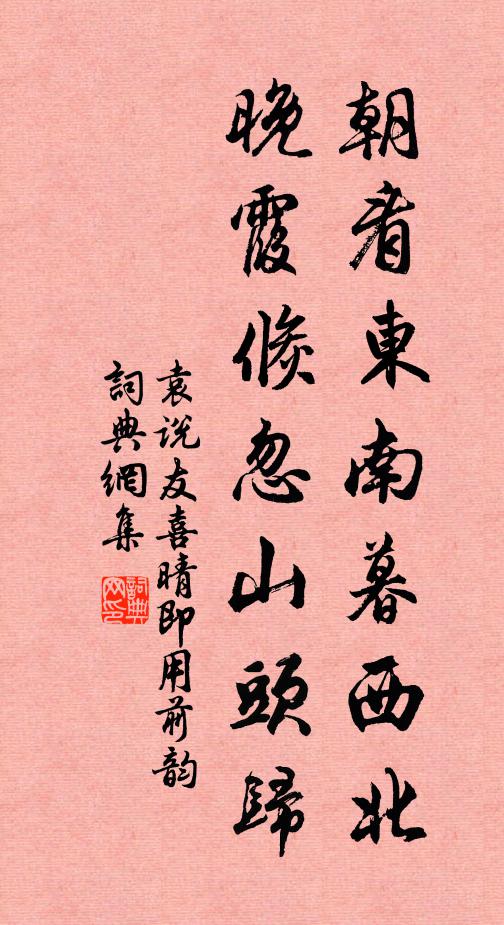 朝看東南暮西北
晚霞倐忽山頭歸
袁说友喜晴即用前韵
詞典網集
詞典网印